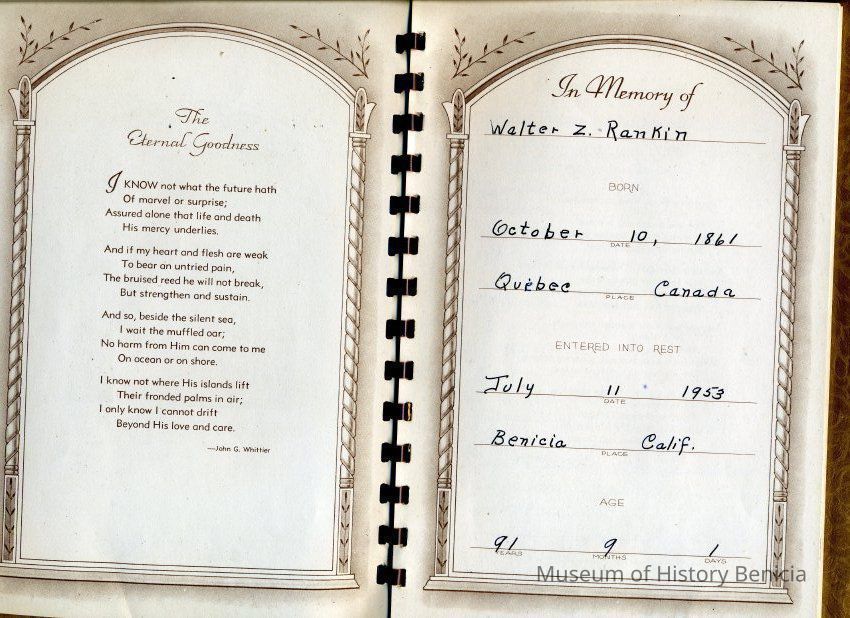 The
Eternal Goodness
I KNOW not what the future hath
Of marvel or surprise;
Assured alone that life and death
His mercy underlies.
And if my heart and flesh are weak
To bear an untried pain,
The bruised reed he will not break,
But strengthen and sustain.
And so, beside the silent sea,
I wait the muffled oar;
No harm from Him can come to me
On ocean or on shore.
I know not where His islands lift
Their fronded palms in air;
I only know I cannot drift
Beyond His love and care.
—John G. Whittier
In Memory of
Walter Z. Rankin
BORN
October 10, 1861
DATE
Quebec Canada
PLACE
ENTERED INTO REST
July 11 1953
DATE
Benicia Calif.
PLACE
AGE
91 9 1
YEARS MONTHS DAYS
Museum of History Benicia